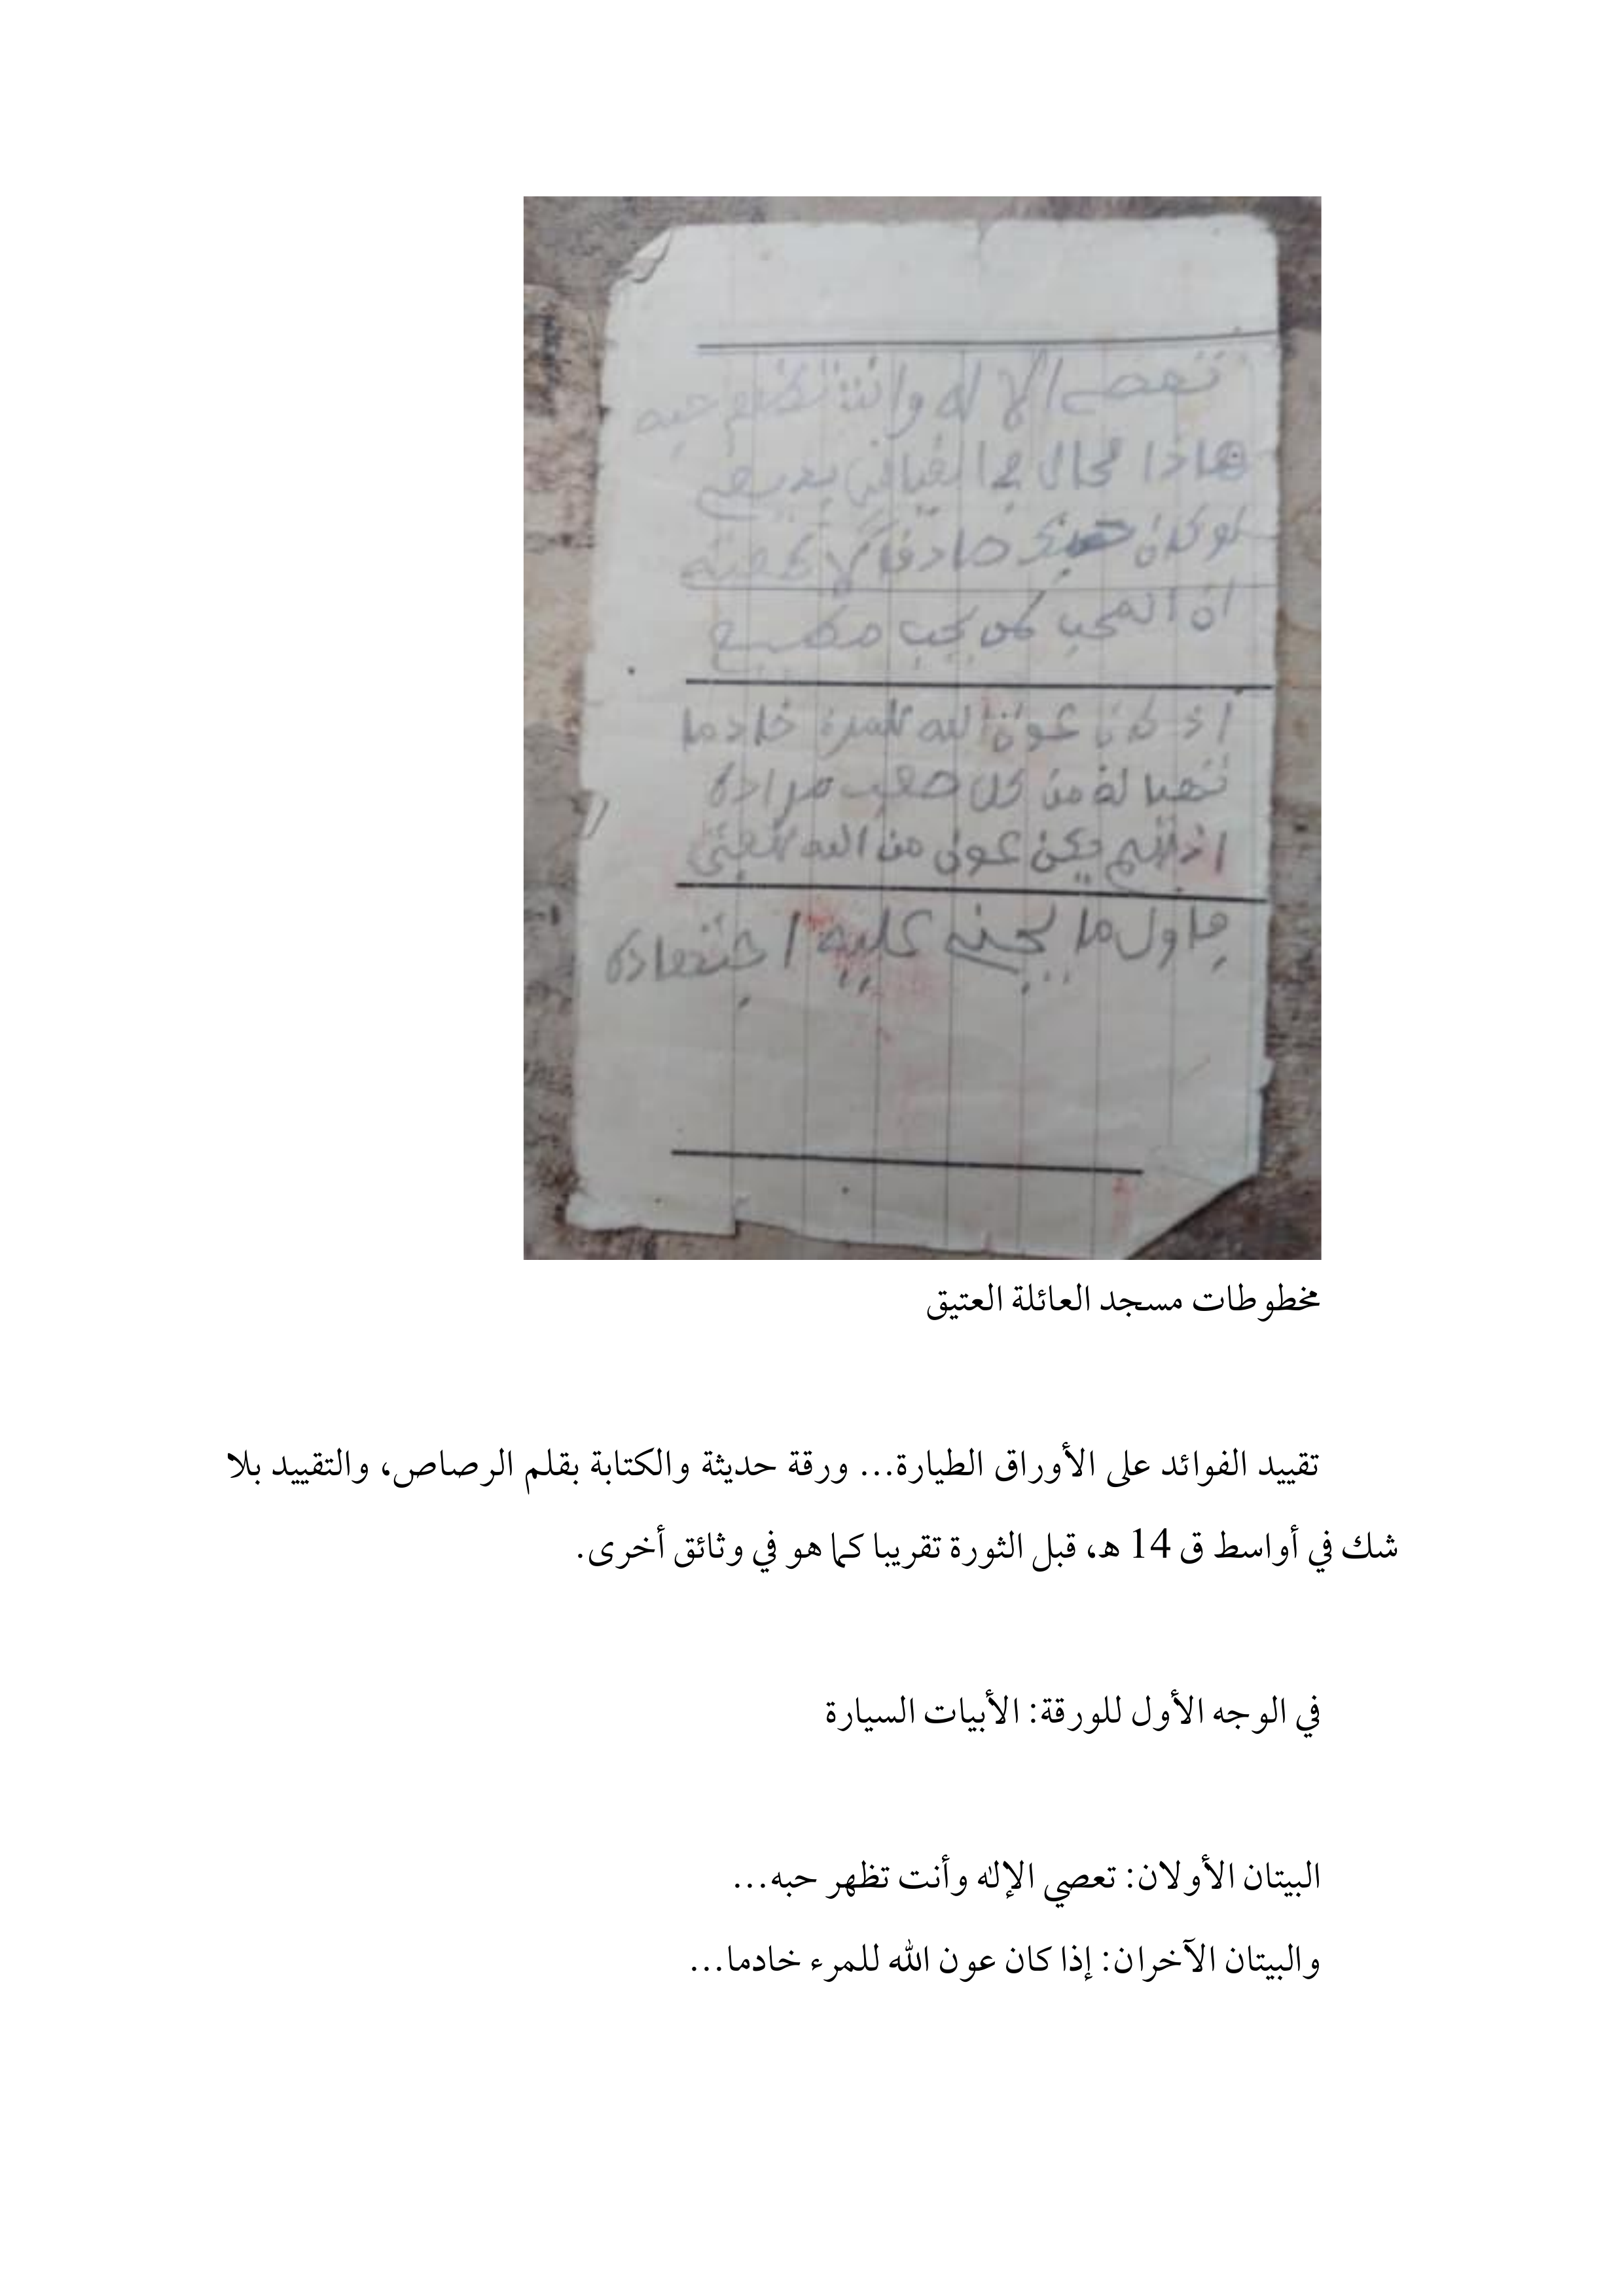 تعصے الاله وانت تظهر حبه
هاذا محال في القياس بديع
لو كان حبك صادفا لاطعته
ان المحب لمن يحب مطيع
اذ كان عون الله للمرء خادما
تهيا له من كل صعب مراده
اذا لم يكن عون من الله للفتى
فاول ما يجنے عليه اجتهاده
مخطوطات مسجد العائلة العتيق
تقييد الفوائد على الأوراق الطيارة... ورقة حديثة والكتابة بقلم الرصاص، والتقييد بلا
شك في أواسط ق 14 ه، قبل الثورة تقريبا كما هو في وثائق أخرى.
في الوجه الأول للورقة: الأبيات السيارة
البيتان الأولان: تعصي الإلٰه وأنت تظهر حبه...
والبيتان الآخران: إذا كان عون الله للمرء خادما...